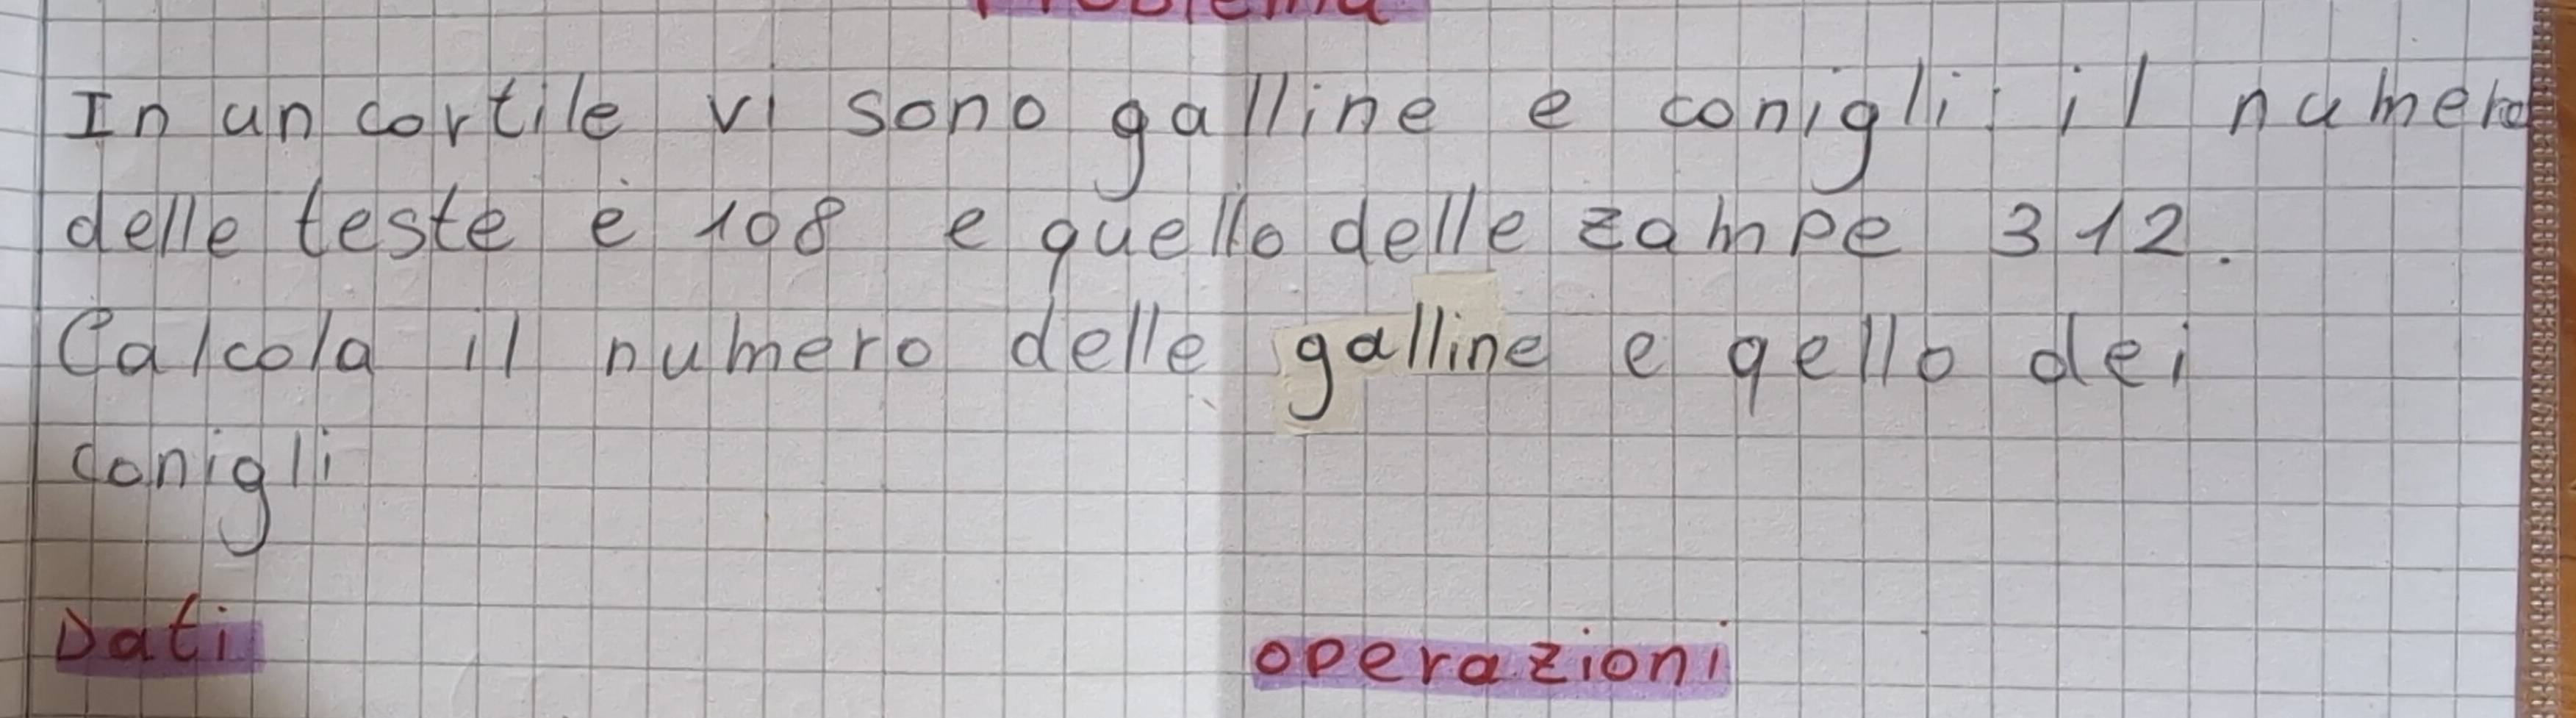 Problema
In un cortile vi sono galline e conigli: il numero
delle teste è 108 e quello delle zampe 312.
Calcola il numero delle galline e qello dei
conigli
Dati
operazioni